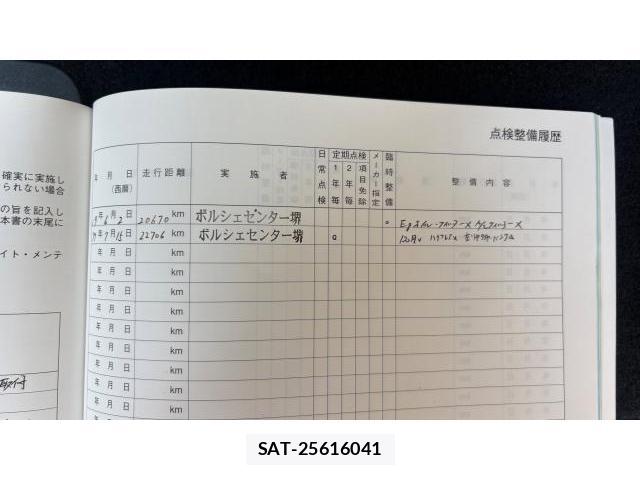 確実に実施し
られない場合
の旨を記入し
本書の末尾に
イト・メンテ
取付
点検整備履歴
年 月 日
(西暦)
走行距離
実 施 者
日常点検
定期点検
1年毎
2年毎
項目免除
メーカー指定
臨時整備
整 備 内 容
年 6月 2日 20670 km ポルシェセンター堺
年 7月 日 22706 km ポルシェセンター堺
年 月 日 km
年 月 日 km
年 月 日 km
年 月 日 km
年 月 日 km
年 月 日 km
年 月 日 km
年 月 日 km
年 月 日 km
SAT-25616041